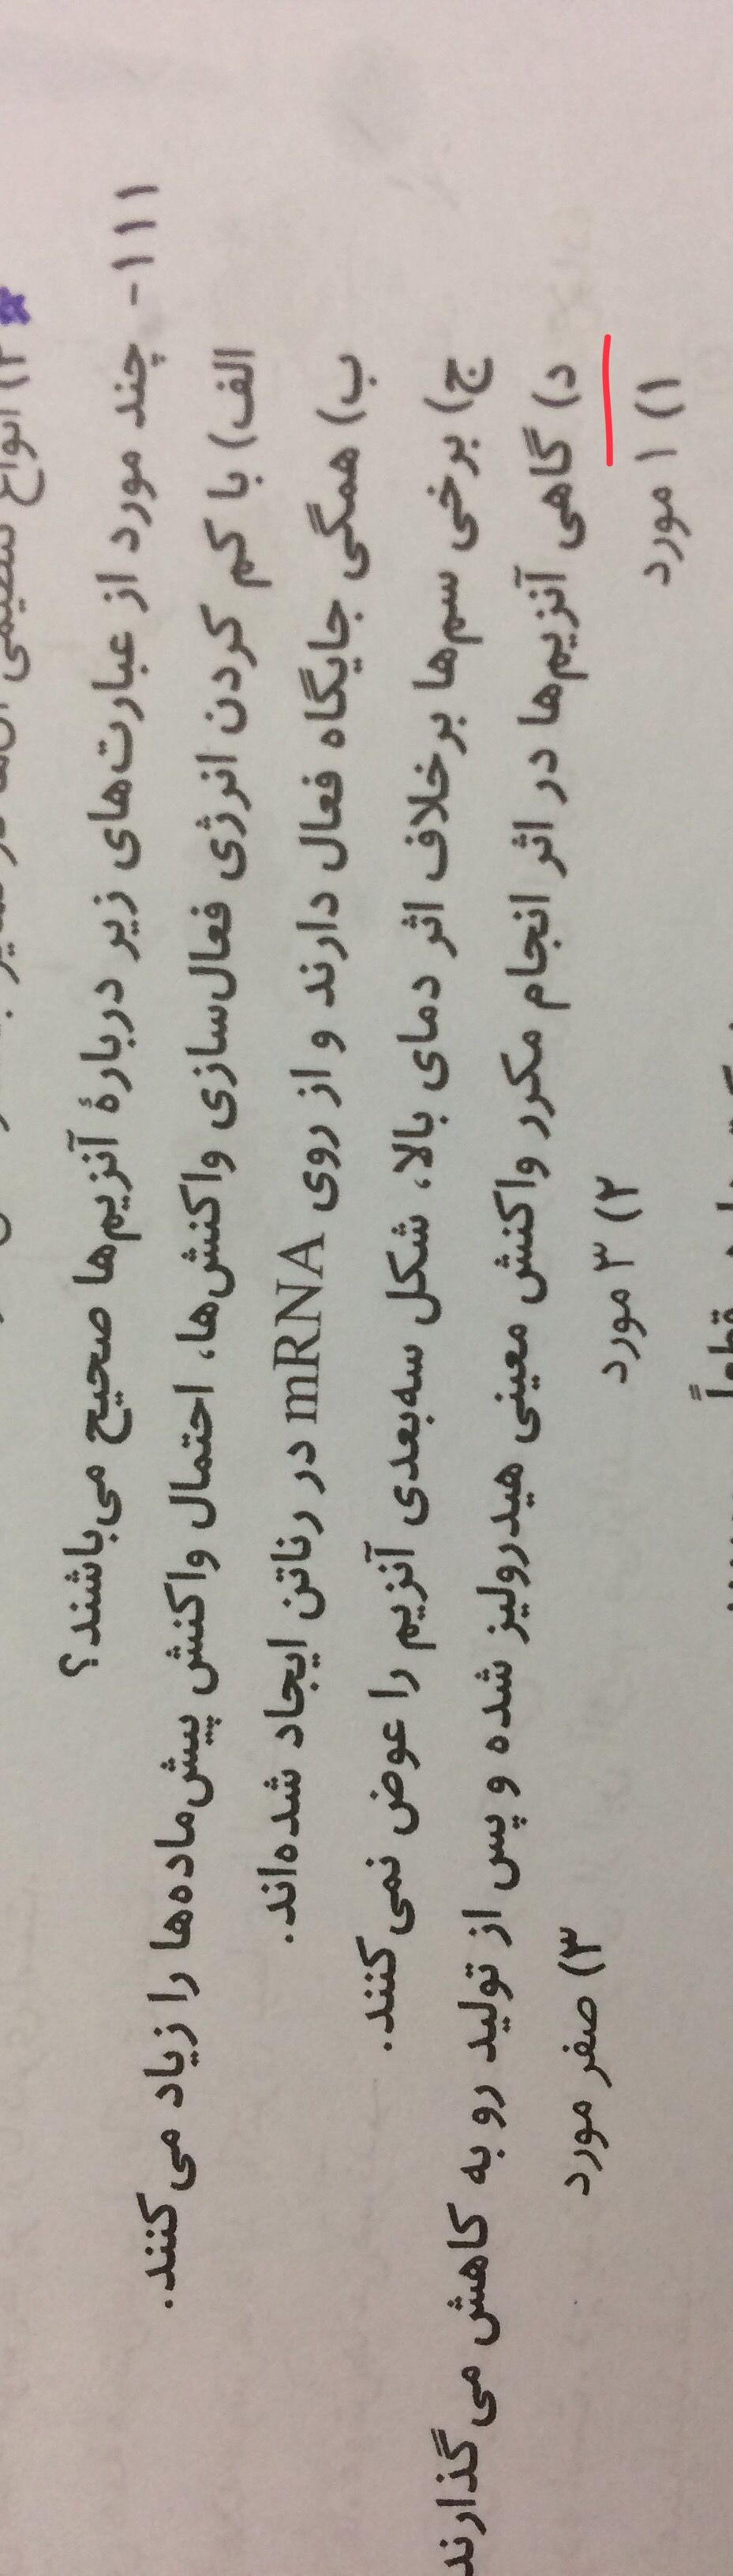 ۱۱۱- چند مورد از عبارت‌های زیر دربارهٔ آنزیم‌ها صحیح می‌باشند؟
الف) با کم کردن انرژی فعال‌سازی واکنش‌ها، احتمال واکنش پیش‌ماده‌ها را زیاد می‌کنند.
ب) همگی جایگاه فعال دارند و از روی mRNA در رناتن ایجاد شده‌اند.
ج) برخی سم‌ها برخلاف اثر دمای بالا، شکل سه‌بعدی آنزیم را عوض نمی‌کنند.
د) گاهی آنزیم‌ها در اثر انجام مکرر واکنش معینی هیدرولیز شده و پس از تولید رو به کاهش می‌گذارند
۱) ۱ مورد ۲) ۳ مورد ۳) صفر مورد